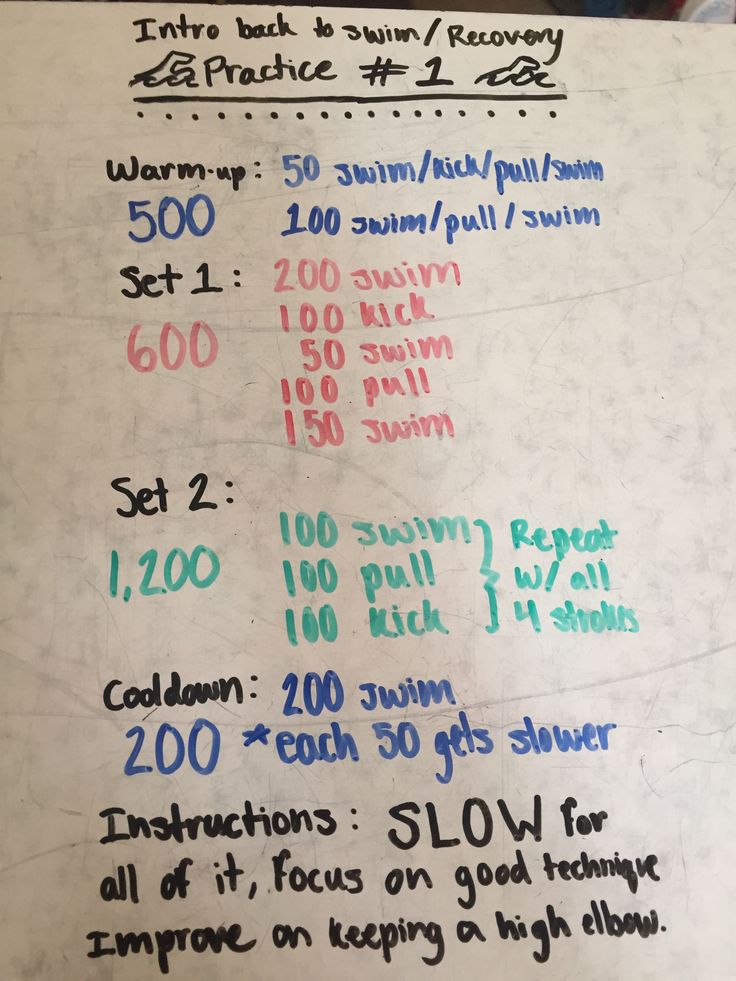 Intro back to swim/Recovery
Practice #1
Warm-up: 50 swim/kick/pull/swim
500 100 swim/pull/swim
Set 1: 200 swim
100 kick
600 50 swim
100 pull
150 swim
Set 2:
100 swim } Repeat
1,200 100 pull w/ all
100 kick 4 strokes
Cooldown: 200 swim
200 *each 50 gets slower
Instructions: SLOW for
all of it, focus on good technique
Improve on keeping a high elbow.